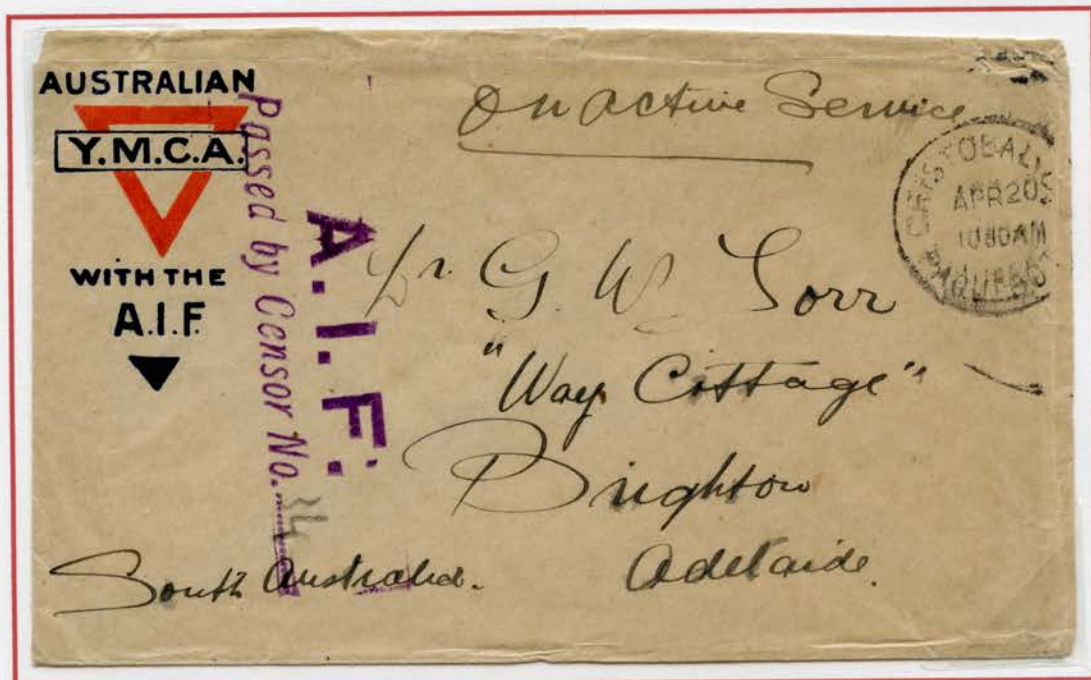 AUSTRALIAN
Y.M.C.A.
WITH THE
A.I.F.
Passed by Censor No.
A.I.F.
On Active Service
CRISTOBAL
APR 20
1030 AM
PAQUEBOT
G. W.
"Way Cottage"
Brighton
Adelaide.
South Australia.